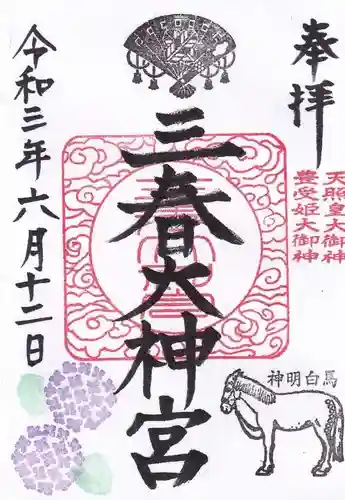 奉拝
天照皇大御神
豊受姫大御神
三春大神宮
令和三年六月十二日
神明白馬